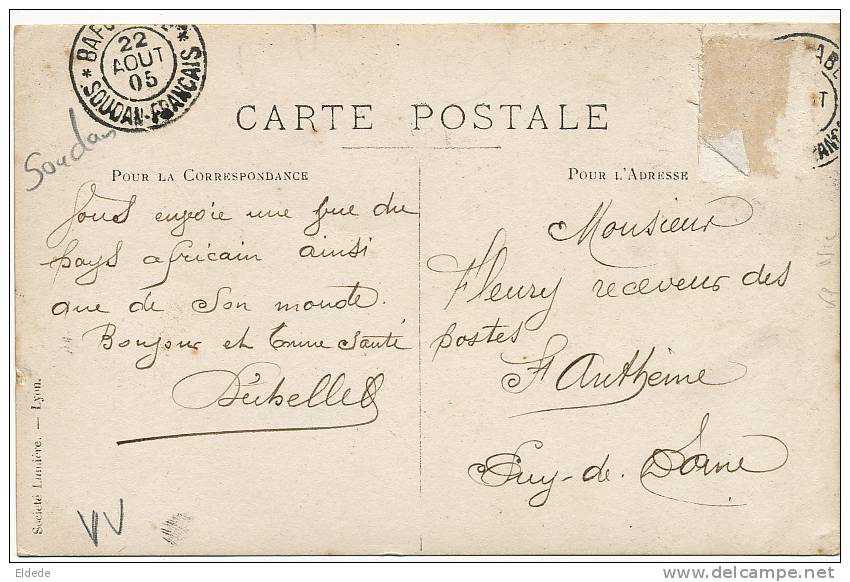 22
AOUT
05
* SOUDAN-FRANÇAIS *
Soudan
CARTE POSTALE
POUR LA CORRESPONDANCE
POUR L'ADRESSE
Vous envoie une vue du
pays africain ainsi
que de son monde.
Bonjour et bonne santé
Monsieur
Fleury receveur des
postes
St Anthème
Puy-de-Dôme
Société Lumière. — Lyon.
VV
Eldede
delcampe.net